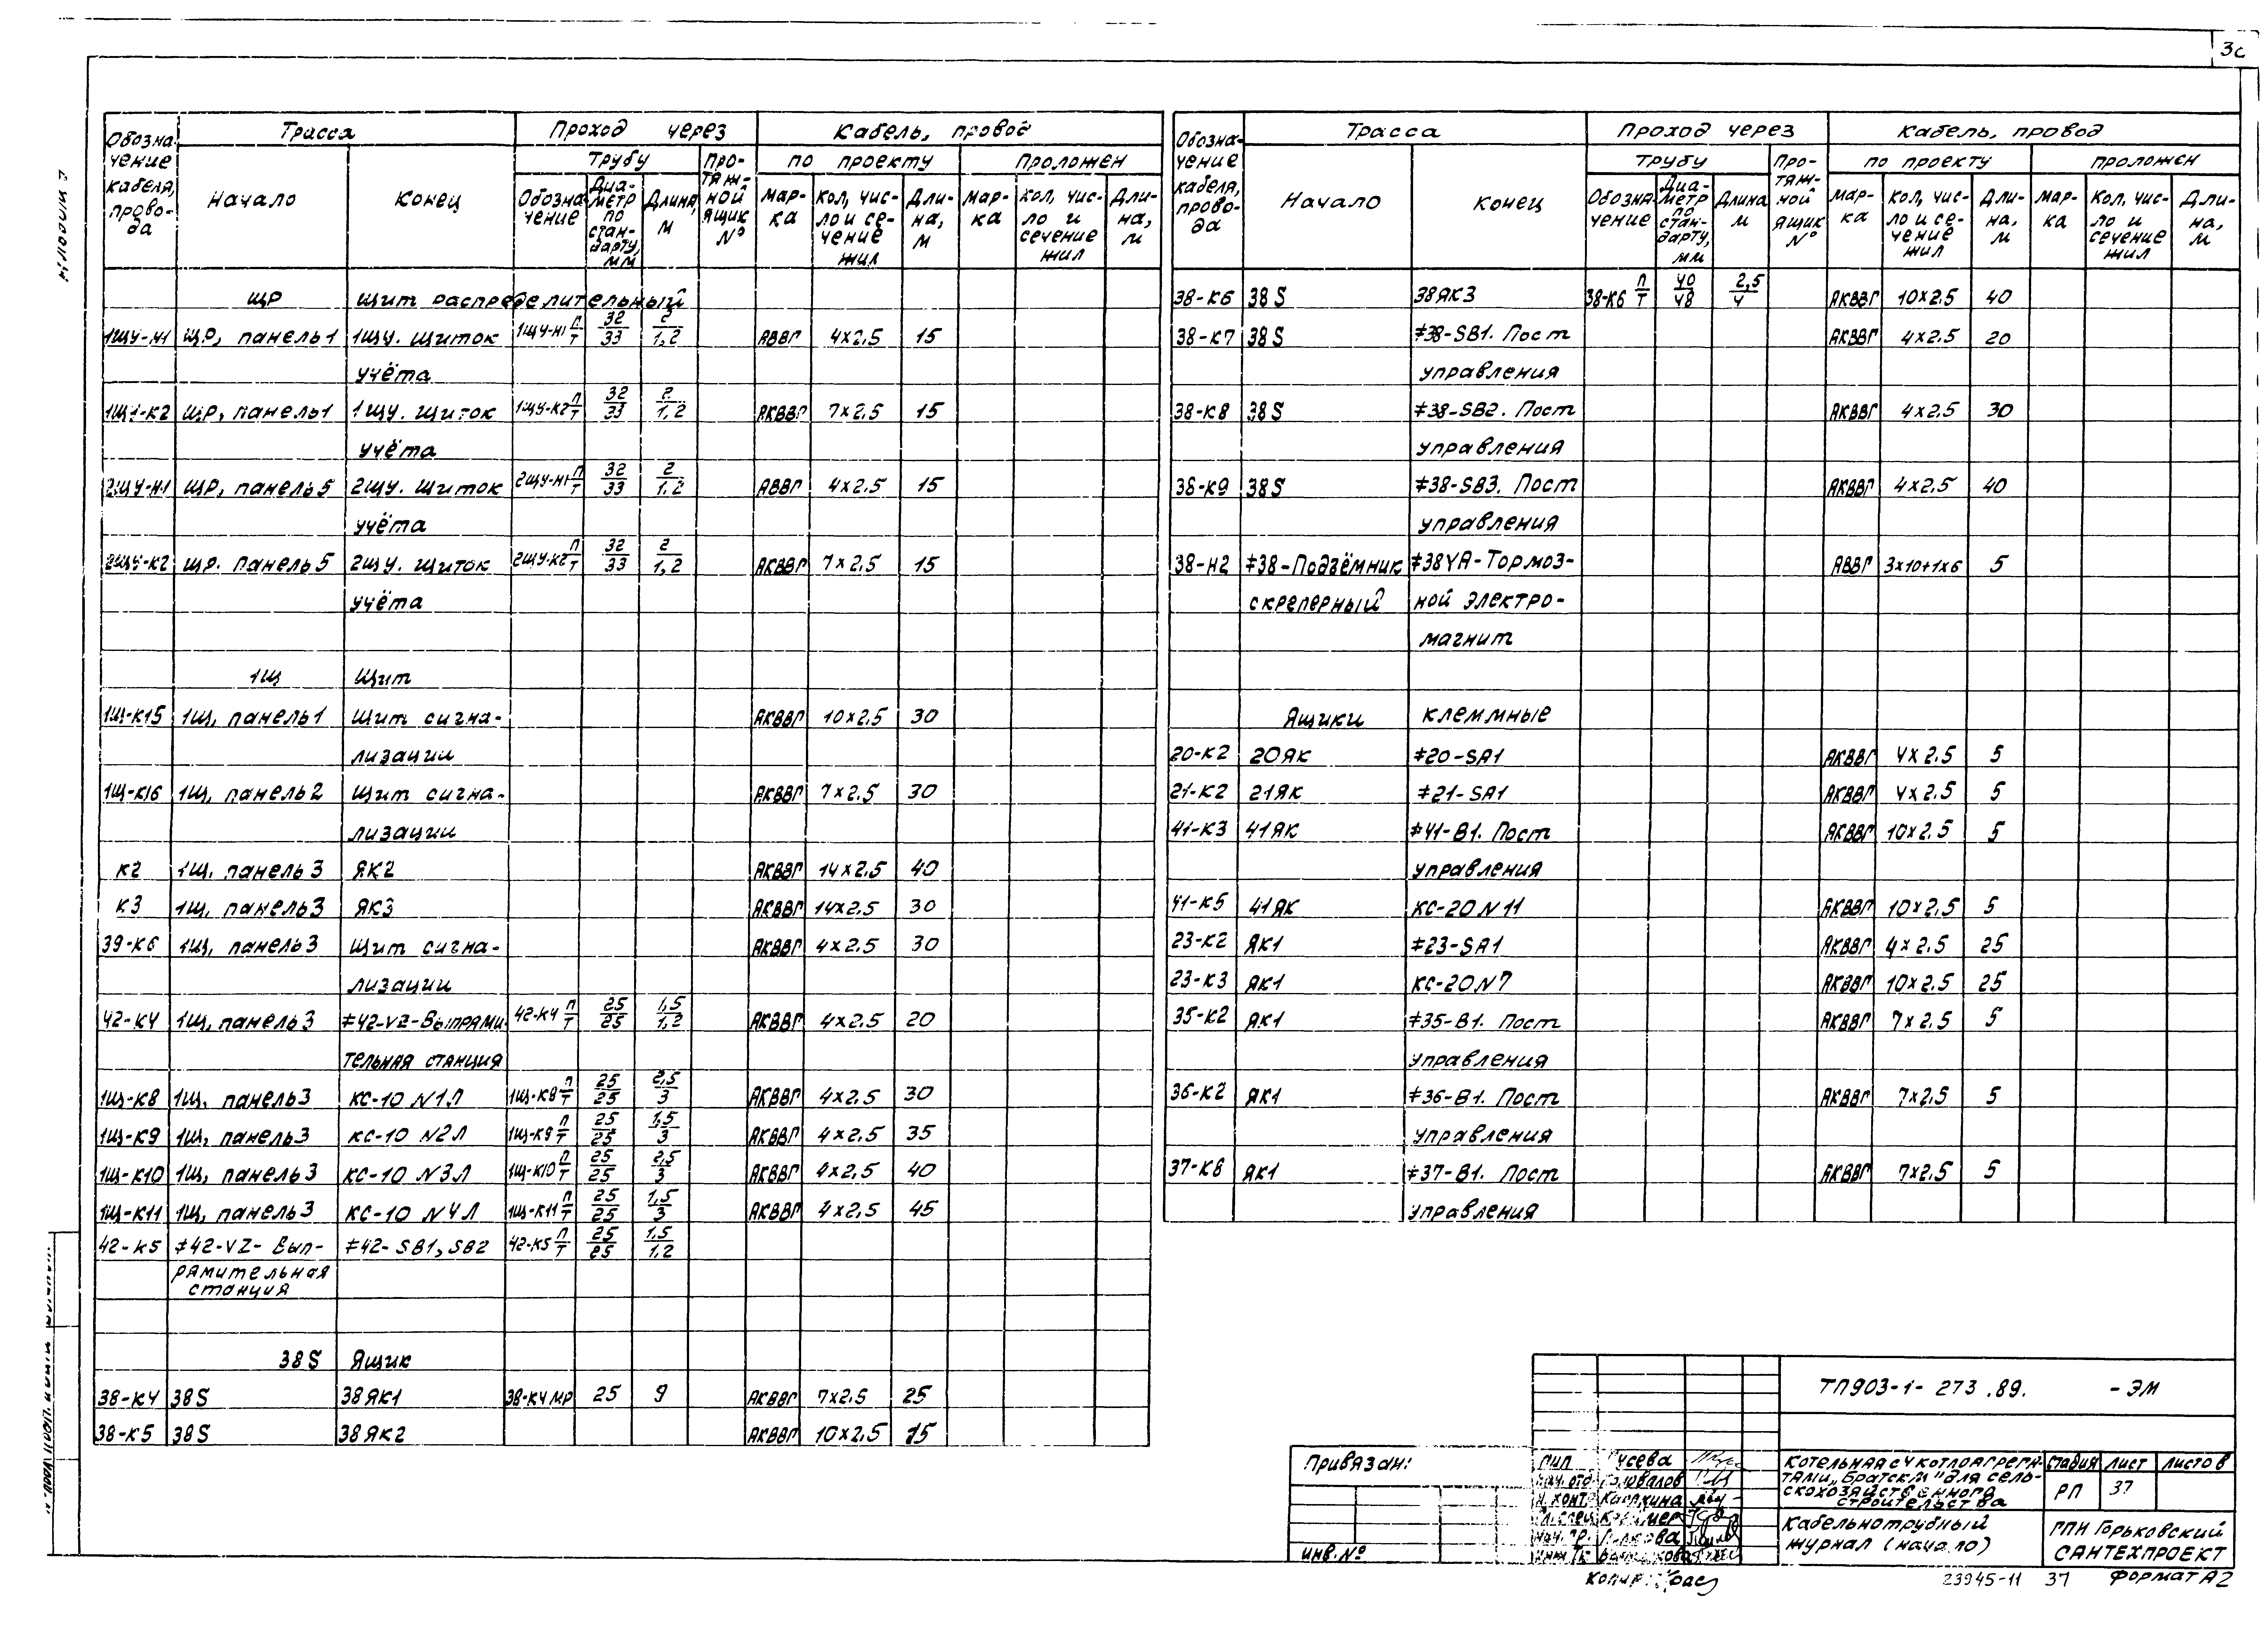 Обозначение кабеля, провода | Трасса | Проход через | Кабель, провод
Начало | Конец | Трубу | Протяжной ящик № | по проекту | проложен
Обозначение | Диаметр по стандарту, мм | Длина, м | Марка | Кол, число и сечение жил | Длина, м | Марка | Кол, число и сечение жил | Длина, м
ЩР | Щит распределительный
1ЩУ-Н1 | ЩР, панель 1 | 1ЩУ. Щиток | 1ЩУ-Н1 П/Т | 32/33 | 2/1,2 | АВВГ | 4х2,5 | 15
учёта
1ЩУ-К2 | ЩР, панель 1 | 1ЩУ. Щиток | 1ЩУ-К2 П/Т | 32/33 | 2/1,2 | АКВВГ | 7х2,5 | 15
учёта
2ЩУ-Н1 | ЩР, панель 5 | 2ЩУ. Щиток | 2ЩУ-Н1 П/Т | 32/33 | 2/1,2 | АВВГ | 4х2,5 | 15
учёта
2ЩУ-К2 | ЩР. панель 5 | 2ЩУ. Щиток | 2ЩУ-К2 П/Т | 32/33 | 2/1,2 | АКВВГ | 7х2,5 | 15
учёта
1Щ | Щит
1Щ-К15 | 1Щ, панель 1 | Щит сигна-
лизации | АКВВГ | 10х2,5 | 30
1Щ-К16 | 1Щ, панель 2 | Щит сигна-
лизации | АКВВГ | 7х2,5 | 30
К2 | 1Щ, панель 3 | ЯК2 | АКВВГ | 14х2,5 | 40
К3 | 1Щ, панель 3 | ЯК3 | АКВВГ | 14х2,5 | 30
39-К6 | 1Щ, панель 3 | Щит сигна-
лизации | АКВВГ | 4х2,5 | 30
42-К4 | 1Щ, панель 3 | ≠42-VZ-Выпрями- | 42-К4 П/Т | 25/25 | 1,5/1,2 | АКВВГ | 4х2,5 | 20
тельная станция
1Щ-К8 | 1Щ, панель 3 | КС-10 N1Л | 1Щ-К8 П/Т | 25/25 | 2,5/3 | АКВВГ | 4х2,5 | 30
1Щ-К9 | 1Щ, панель 3 | КС-10 N2Л | 1Щ-К9 П/Т | 25/25 | 1,5/3 | АКВВГ | 4х2,5 | 35
1Щ-К10 | 1Щ, панель 3 | КС-10 N3Л | 1Щ-К10 П/Т | 25/25 | 2,5/3 | АКВВГ | 4х2,5 | 40
1Щ-К11 | 1Щ, панель 3 | КС-10 N4Л | 1Щ-К11 П/Т | 25/25 | 1,5/3 | АКВВГ | 4х2,5 | 45
42-К5 | ≠42-VZ- Вып- | ≠42- SB1, SB2 | 42-К5 П/Т | 25/25 | 1,5/1,2
рямительная
станция
38S | Ящик
38-К4 | 38S | 38ЯК1 | 38-К4 МР | 25 | 9 | АКВВГ | 7х2,5 | 25
38-К5 | 38S | 38ЯК2 | АКВВГ | 10х2,5 | 15
Обозначение кабеля, провода | Трасса | Проход через | Кабель, провод
Начало | Конец | Трубу | Протяжной ящик № | по проекту | проложен
Обозначение | Диаметр по стандарту, мм | Длина м | Марка | Кол, число и сечение жил | Длина, м | Марка | Кол, число и сечение жил | Длина, м
38-К6 | 38S | 38ЯК3 | 38-К6 П/Т | 40/48 | 2,5/4 | АКВВГ | 10х2,5 | 40
38-К7 | 38S | ≠38-SB1. Пост | АКВВГ | 4х2,5 | 20
управления
38-К8 | 38S | ≠38-SB2. Пост | АКВВГ | 4х2,5 | 30
управления
38-К9 | 38S | ≠38-SB3. Пост | АКВВГ | 4х2,5 | 40
управления
38-Н2 | ≠38-Подъёмник | ≠38YA-Тормоз- | АВВГ | 3х10+1х6 | 5
скреперный | ной электро-
магнит
Ящики | клеммные
20-К2 | 20ЯК | ≠20-SA1 | АКВВГ | 4х2,5 | 5
21-К2 | 21ЯК | ≠21-SA1 | АКВВГ | 4х2,5 | 5
41-К3 | 41ЯК | ≠41-B1. Пост | АКВВГ | 10х2,5 | 5
управления
41-К5 | 41ЯК | КС-20 N11 | АКВВГ | 10х2,5 | 5
23-К2 | ЯК1 | ≠23-SA1 | АКВВГ | 4х2,5 | 25
23-К3 | ЯК1 | КС-20 N7 | АКВВГ | 10х2,5 | 25
35-К2 | ЯК1 | ≠35-B1. Пост | АКВВГ | 7х2,5 | 5
управления
36-К2 | ЯК1 | ≠36-B1. Пост | АКВВГ | 7х2,5 | 5
управления
37-К8 | ЯК1 | ≠37-B1. Пост | АКВВГ | 7х2,5 | 5
управления
ТП903-1-273.89. -ЭМ
Привязан:
инв.№
ГИП Гусева
Котельная с 4 котлоагрега-
тами „Братск" для сель-
скохозяйственного
строительства
стадия лист листов
РП 37
Кабельнотрубный
журнал (начало)
ГПИ Горьковский
САНТЕХПРОЕКТ
23945-11 37 Формат А2